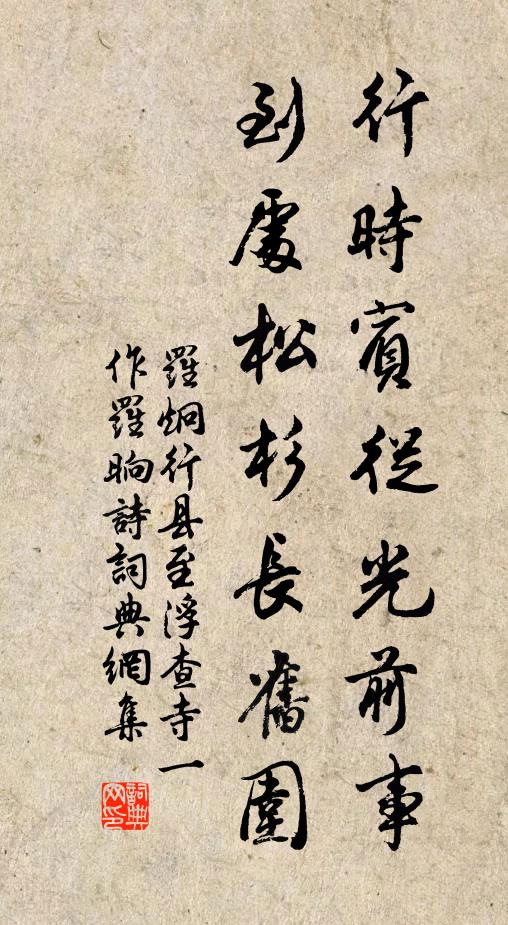 行時賓從光前事
到處松杉長舊圍
羅炯行县至浮查寺一
作羅晌詩詞典網集
詞典网印